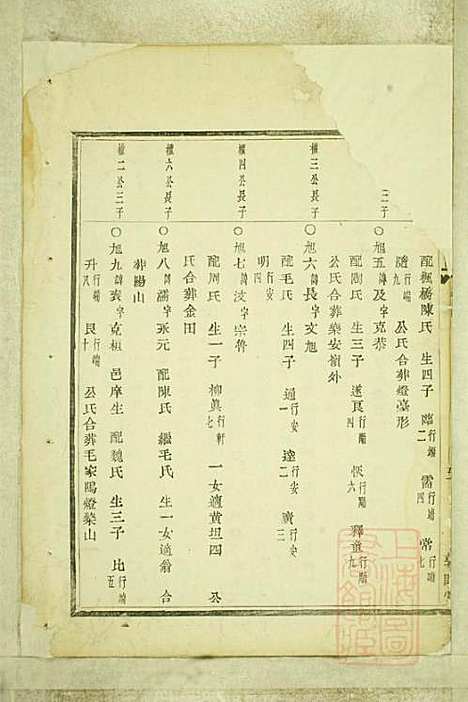 配楓橋陳氏 生四子 臨行端二 需行端四 常行端七
隨行端九 公氏合葬燈臺形
三子
○旭五諱及字克恭
配陶氏 生三子 遂良行陽四 恢行陽六 釋童行陽九
公氏合葬藥安嶺外
權三公長子
○旭六諱長字文旭
配毛氏 生四子 通行安一 達行安二 廣行安三
明行安四
權四公長子
○旭七諱汶字宗魯
配周氏 生一子 柳眞行軒七 一女適黃坦四 公
氏合葬金田
權六公長子
○旭八諱 字永元 配陳氏 繼毛氏 生一女適翁 合
葬陽山
權二公三子
○旭九諱 字克桓 邑庠生 配魏氏 生三子 比行端五
升行端八 艮行端十 公氏合葬毛家陽燈 山
上海圖書館藏